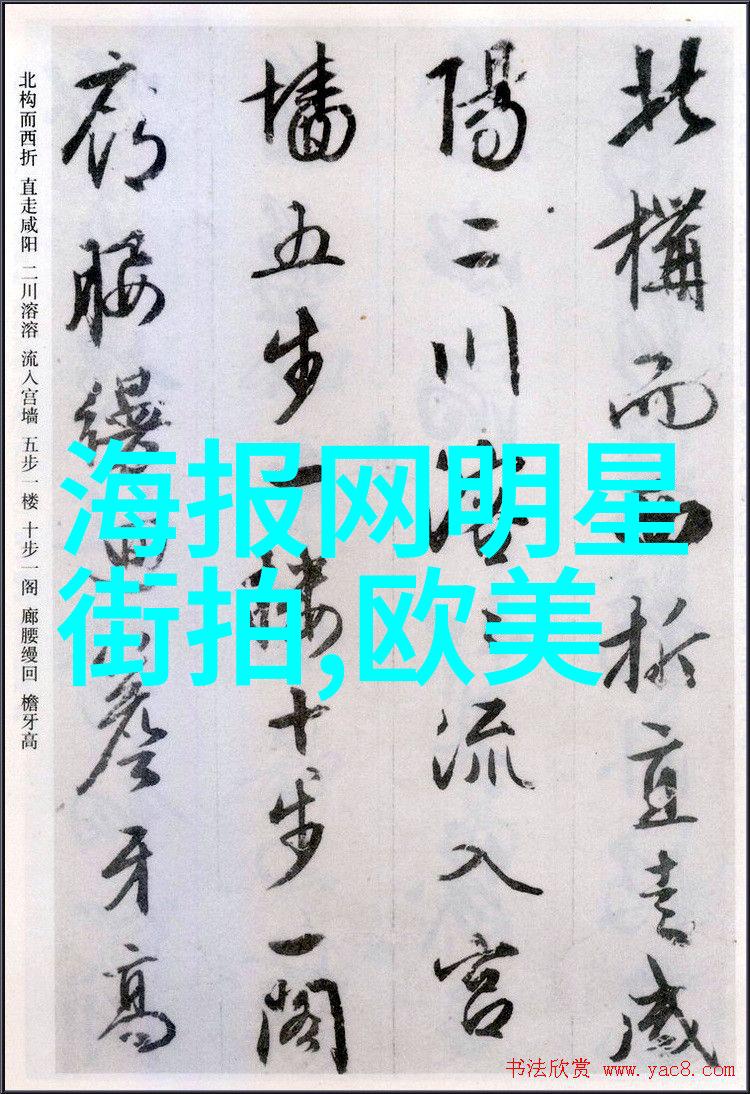 北構而西折直走咸
陽二川溶〻流入宮
墻五步一樓十步一閣
廊腰縵迴簷牙高
北构而西折 直走咸阳 二川溶溶 流入宫墙 五步一楼 十步一阁 廊腰缦回 檐牙高
海报网明星
街拍,欧美
书法欣赏 www.yac8.com